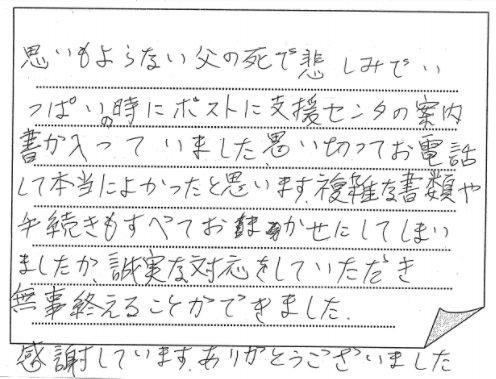 思いもよらない父の死で悲しみでい
っぱいの時にポストに支援センタの案内
書が入っていました。思い切ってお電話
して本当によかったと思います。複雑な書類や
手続きもすべておまかせにしてしまい
ましたが、誠実な対応をしていただき
無事終えることができました。
感謝しています。ありがとうございました